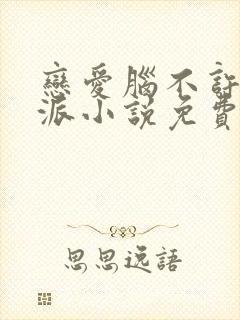 戀愛腦不許
派小說免費
思思逸語